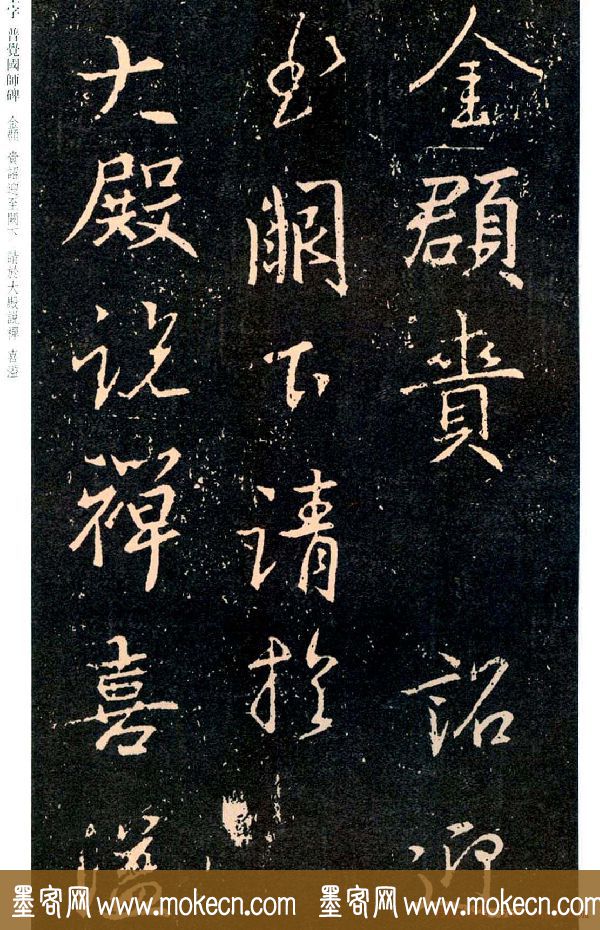 金頵賫詔迎
至闕下請於
大殿説禪喜溢
字 普覺國師碑 金頵 賫詔迎至闕下 請於大殿説禪 喜溢
墨客网 www.mokecn.com 墨客网 www.mokecn.com